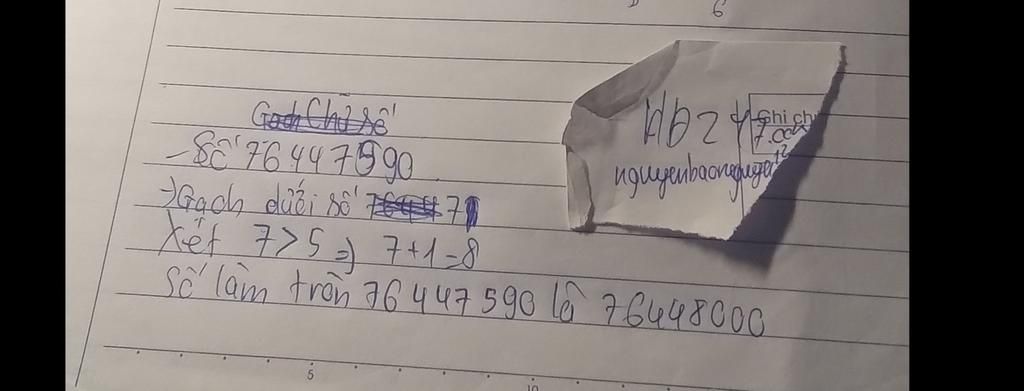 6
Gạch Chữ số
- Số 76447590
→ Gạch dưới số 7644 7
Xét 7 > 5 => 7 + 1 = 8
Số làm tròn 76447590 là 76448000
HD2
Ghi ch
nguyenbaonguyen
5
10